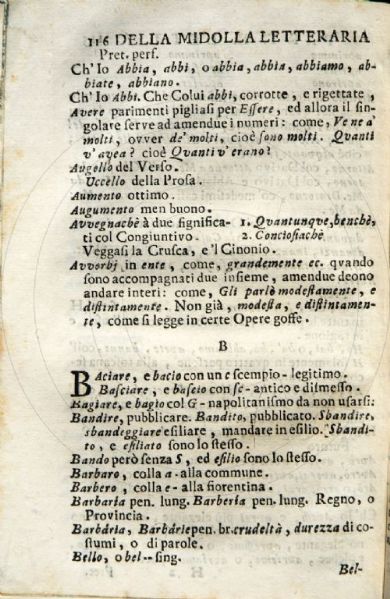 116 DELLA MIDOLLA LETTERARIA
Pret. perf.
Ch' Io Abbia, abbi, o abbia, abbia, abbiamo, ab-
biate, abbiano.
Ch' Io Abbi. Che Colui abbi, corrotte, e rigettate,
Avere parimenti pigliasi per Essere, ed allora il sin-
golare serve ad amendue i numeri: come, Ve ne a'
molti, ovver de' molti, cioè sono molti. Quanti
v' avea? cioè Quanti v' erano?
Augello del Verso.
Uccello della Prosa.
Aumento ottimo.
Augumento men buono.
Avvegnachè à due significa- 1. Quantunque, benchè,
ti col Congiuntivo. 2. Conciosiachè
Veggasi la Crusca, e 'l Cinonio.
Avvorbj in ente, come, grandemente ec. quando
sono accompagnati due insieme, amendue deono
andare interi: come, Gli parlò modestamente, e
distintamente. Non già, modesta, e distintamen-
te, come si legge in certe Opere goffe.
B
BAciare, e bacio con un c scempio - legitimo.
Basciare, e bascio con sc - antico e dismesso.
Bagiare, e bagio col G - napolitanismo da non usarsi:
Bandire, pubblicare. Bandito, pubblicato. Sbandire,
sbandeggiare esiliare, mandare in esilio. Sbandi-
to, e esiliato sono lo stesso.
Bando però senza S, ed esilio sono lo stesso.
Barbaro, colla a - alla commune.
Barbero, colla e - alla fiorentina.
Barbaria pen. lung. Barberia pen. lung. Regno, o
Provincia.
Barbária, Barbárie pen. br. crudeltà, durezza di co-
stumi, o di parole.
Bello, o bel -- sing.
Bel-